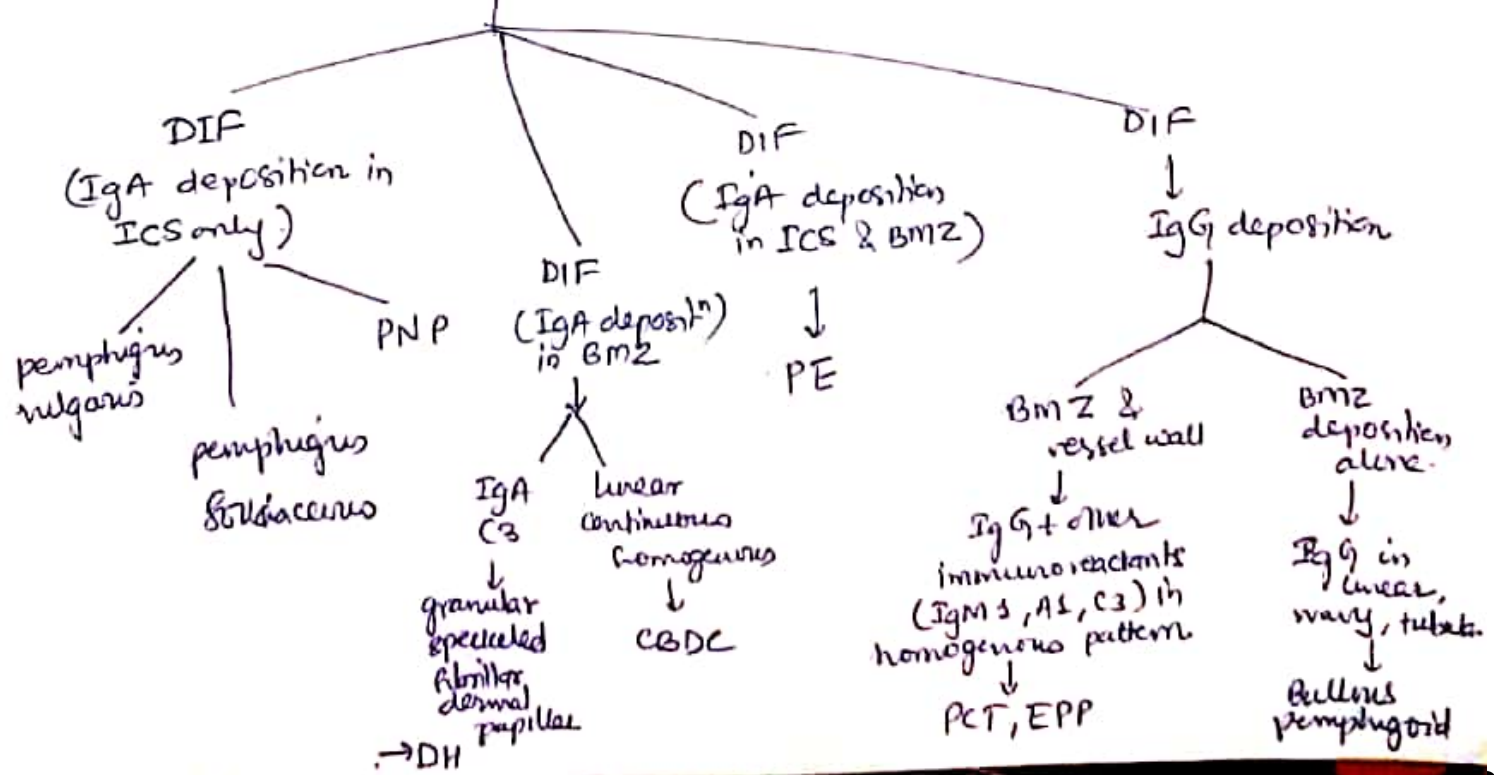 DIF
(IgA deposition in
ICS only)
pemphigus
vulgaris
pemphigus
foliaceus
PNP
DIF
(IgA depositn)
in BMZ
IgA
C3
granular
speckled
fibrillar
dermal
papillae
→DH
linear
continuous
homogenous
CBDC
DIF
(IgA deposition
in ICS & BMZ)
PE
DIF
IgG deposition
BMZ &
vessel wall
IgG + other
immunoreactants
(IgM1, A1, C3) in
homogenous pattern
PCT, EPP
BMZ
deposition
alone.
IgG in
linear,
wavy,
Bullous
pemphigoid